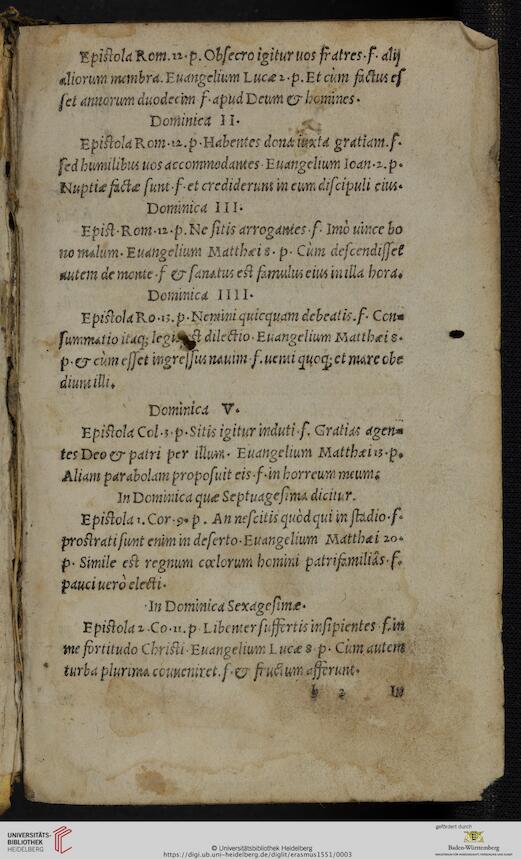 Epistola Rom.12.p. Obsecro igitur uos fratres.f. alij
aliorum membra. Euangelium Lucæ 2.p. Et cùm factus eſ
ſet annorum duodecim f. apud Deum & homines.
Dominica II.
Epistola Rom.12.p. Habentes dona iuxta gratiam.f.
ſed humilibus uos accommodantes. Euangelium Ioan.2.p.
Nuptiæ factæ ſunt.f. et crediderunt in eum diſcipuli eius.
Dominica III.
Epist. Rom.12.p. Ne ſitis arrogantes.f. Imò uince bo
no malum. Euangelium Matthæi 8.p. Cùm deſcendiſſet
autem de monte.f & ſanatus est famulus eius in illa hora.
Dominica IIII.
Epistola Ro.13.p. Nemini quicquam debeatis.f. Con=
ſummatio itaq; dilectio. Euangelium Matthæi 8.
p. & cùm eſſet ingreſſus nauim.f. uenti quoq; et mare obe
diunt illi.
Dominica V.
Epistola Col.3.p. Sitis igitur induti.f. Gratias agen=
tes Deo & patri per illum. Euangelium Matthæi 13.p.
Aliam parabolam propoſuit eis.f. in horreum meum.
In Dominica quæ Septuageſima dicitur.
Epistola 1. Cor.9.p. An neſcitis quòd qui in stadio.f.
prostrati ſunt enim in deſerto. Euangelium Matthæi 20.
p. Simile est regnum cœlorum homini patrifamiliâs.f.
pauci uerò electi.
In Dominica Sexageſimæ.
Epistola 2.Co.11.p. Libenter ſuffertis inſipientes f. in
me fortitudo Christi. Euangelium Lucæ 8.p. Cùm autem
turba plurima conueniret.f. & fructum afferunt.
b 2 In
UNIVERSITÄTS-
BIBLIOTHEK
HEIDELBERG
© Universitätsbibliothek Heidelberg
https://digi.ub.uni-heidelberg.de/diglit/erasmus1551/0003
gefördert durch
Baden-Württemberg